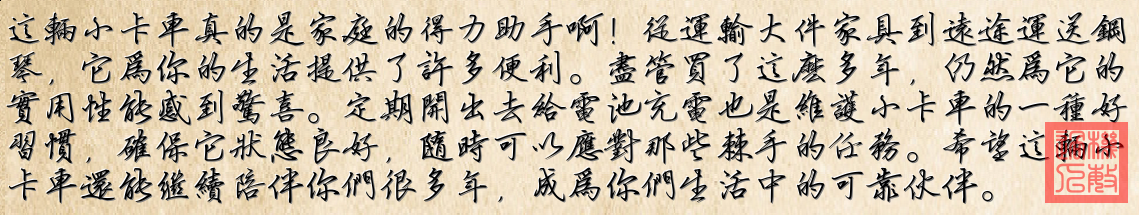 這輛小卡車真的是家庭的得力助手啊！從運輸大件家具到遠途運送鋼
琴，它為你的生活提供了許多便利。儘管買了這麼多年，仍然為它的
實用性能感到驚喜。定期開出去給電池充電也是維護小卡車的一種好
習慣，確保它狀態良好，隨時可以應對那些棘手的任務。希望這輛小
卡車還能繼續陪伴你們很多年，成為你們生活中的可靠伙伴。